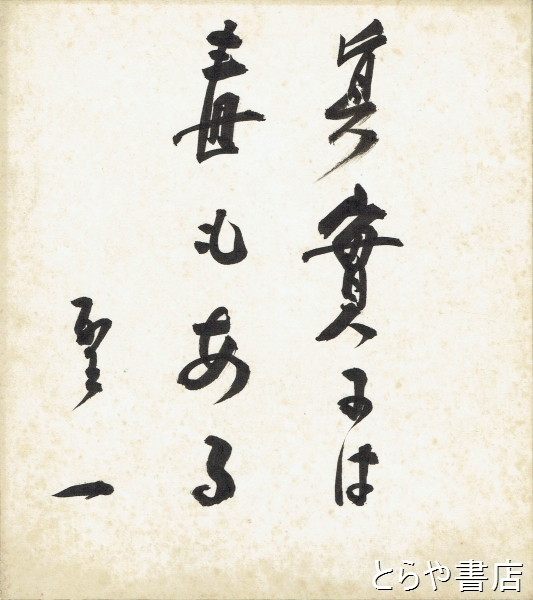 眞實には
毒もある
聖一
とらや書店